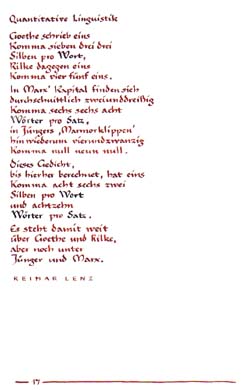 Quantitative Linguistik
Goethe schrieb eins
Komma sieben drei drei
Silben pro Wort,
Rilke dagegen eins
Komma vier fünf eins.
In Marx' Kapital finden sich
durchschnittlich zweiunddreißig
Komma sechs sechs acht
Wörter pro Satz,
in Jüngers ‚Marmorklippen'
hinwiederum vierundzwanzig
Komma null neun null.
Dieses Gedicht,
bis hierher berechnet, hat eins
Komma acht sechs zwei
Silben pro Wort
und achtzehn
Wörter pro Satz.
Es steht damit weit
über Goethe und Rilke,
aber noch unter
Jünger und Marx.
REIMAR LENZ
37